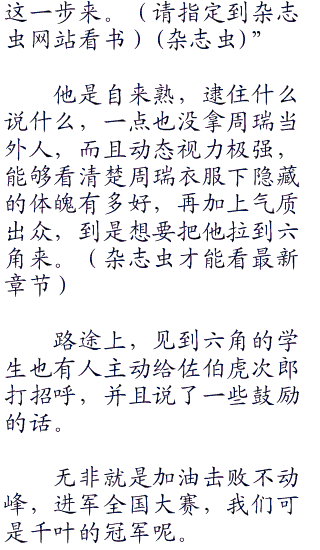 这一步来。（请指定到杂志
虫网站看书）(杂志虫)”
他是自来熟，逮住什么
说什么，一点也没拿周瑞当
外人，而且动态视力极强，
能够看清楚周瑞衣服下隐藏
的体魄有多好，再加上气质
出众，到是想要把他拉到六
角来。（杂志虫才能看最新
章节）
路途上，见到六角的学
生也有人主动给佐伯虎次郎
打招呼，并且说了一些鼓励
的话。
无非就是加油击败不动
峰，进军全国大赛，我们可
是千叶的冠军呢。